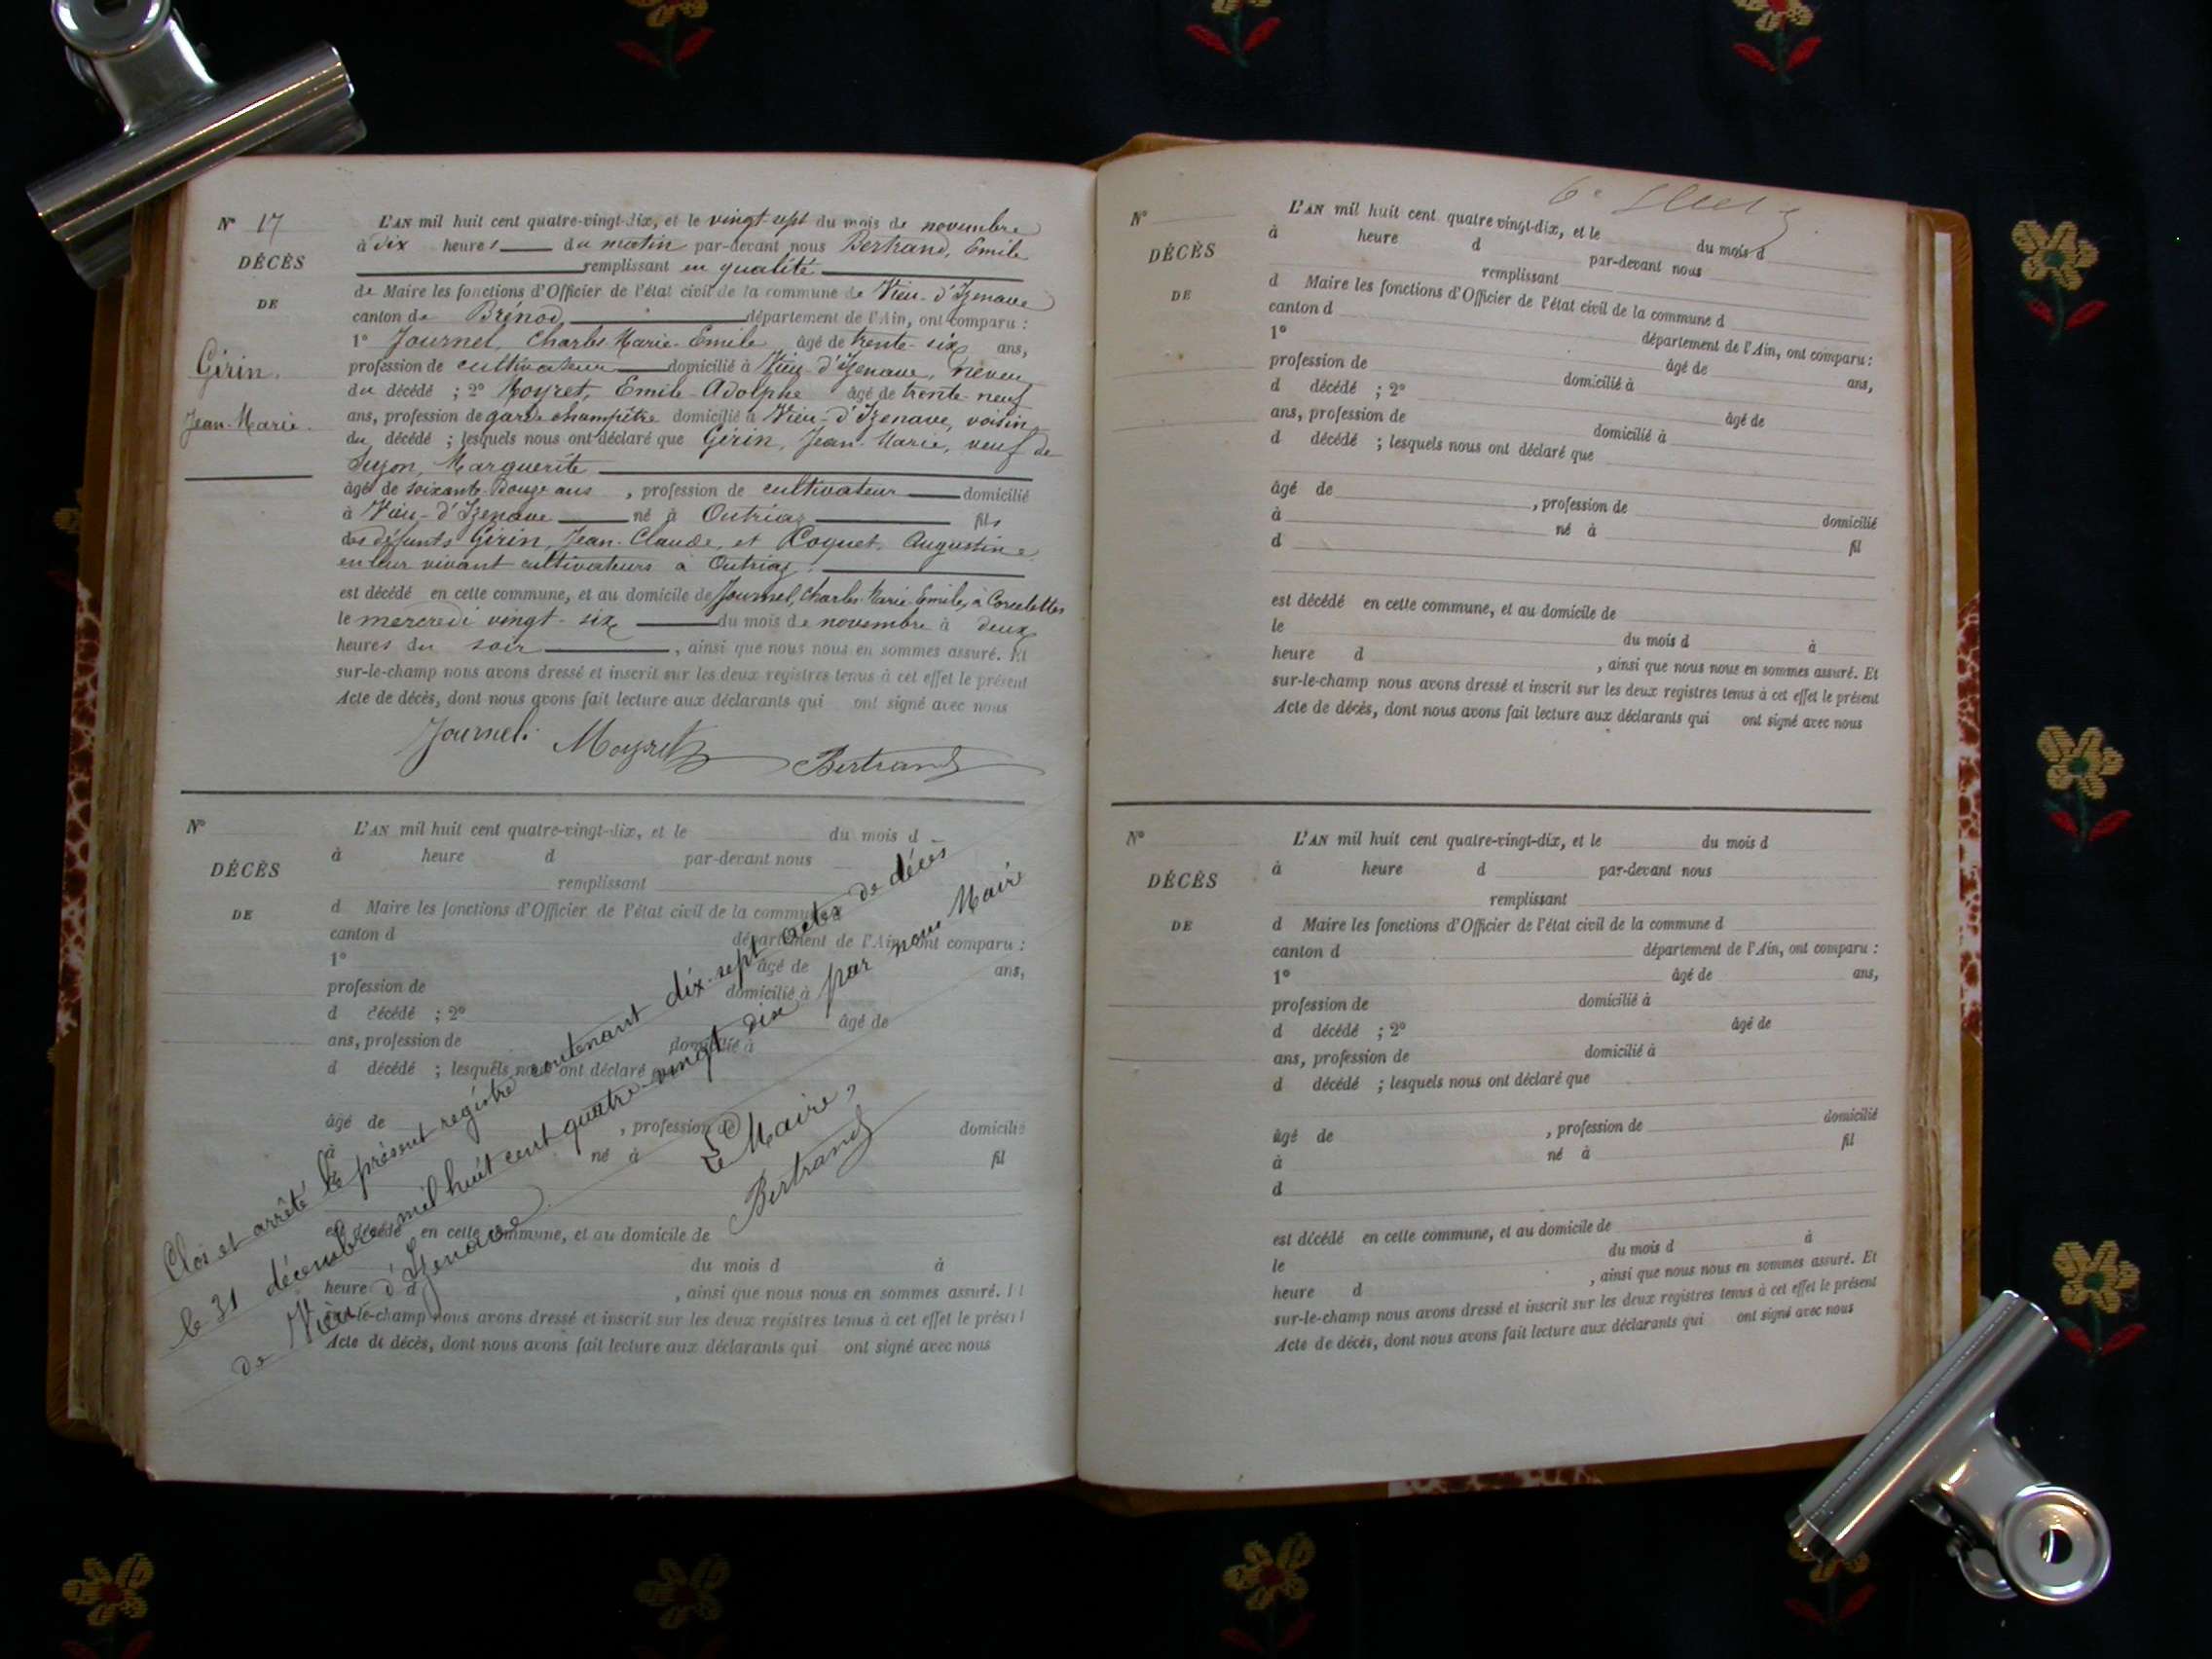 N° 17
DÉCÈS
DE
Girin.
Jean-Marie.
L'AN mil huit cent quatre-vingt-dix, et le vingt-sept du mois de novembre
à dix heures du matin par-devant nous Bertrand, Emile
remplissant en qualité
de Maire les fonctions d'Officier de l'état civil de la commune de Vieu-d'Izenave
canton de Brénod département de l'Ain, ont comparu :
1° Journel, Charles-Marie-Emile âgé de trente-six ans,
profession de cultivateur domicilié à Vieu-d'Izenave, neveu
du décédé ; 2° Moyret, Emile-Adolphe âgé de trente-neuf
ans, profession de garde champêtre domicilié à Vieu-d'Izenave, voisin
du décédé ; lesquels nous ont déclaré que Girin, Jean-Marie, veuf de
Marguerite
âgé de soixante-douze ans , profession de cultivateur domicilié
à Vieu-d'Izenave né à Outriaz fils
des défunts Girin, Jean-Claude, et Augustine
en leur vivant cultivateurs à Outriaz.
est décédé en cette commune, et au domicile de Journel, Charles-Marie-Emile, à Corcelettes
le mercredi vingt-six du mois de novembre à deux
heures du soir , ainsi que nous nous en sommes assuré. Et
sur-le-champ nous avons dressé et inscrit sur les deux registres tenus à cet effet le présent
Acte de décès, dont nous avons fait lecture aux déclarants qui ont signé avec nous
Journel. Moyret Bertrand
N°
DÉCÈS
DE
L'AN mil huit cent quatre-vingt-dix, et le du mois d
à heure d par-devant nous
remplissant
d Maire les fonctions d'Officier de l'état civil de la commune d
canton d département de l'Ain, ont comparu :
1° âgé de ans,
profession de domicilié à
d décédé ; 2° âgé de
ans, profession de domicilié à
d décédé ; lesquels nous ont déclaré que
âgé de , profession de domicilié
à né à fil
d
est décédé en cette commune, et au domicile de
le du mois d à
heure d , ainsi que nous nous en sommes assuré. Et
sur-le-champ nous avons dressé et inscrit sur les deux registres tenus à cet effet le présent
Acte de décès, dont nous avons fait lecture aux déclarants qui ont signé avec nous
Clos et arrêté le présent registre contenant dix-sept actes de décès
le 31 décembre mil huit cent quatre-vingt dix par nous Maire
de Vieu-d'Izenave
Le Maire,
Bertrand
N°
DÉCÈS
DE
L'AN mil huit cent quatre-vingt-dix, et le du mois d
à heure d par-devant nous
remplissant
d Maire les fonctions d'Officier de l'état civil de la commune d
canton d département de l'Ain, ont comparu :
1° âgé de ans,
profession de domicilié à
d décédé ; 2° âgé de
ans, profession de domicilié à
d décédé ; lesquels nous ont déclaré que
âgé de , profession de domicilié
à né à fil
d
est décédé en cette commune, et au domicile de
le du mois d à
heure d , ainsi que nous nous en sommes assuré. Et
sur-le-champ nous avons dressé et inscrit sur les deux registres tenus à cet effet le présent
Acte de décès, dont nous avons fait lecture aux déclarants qui ont signé avec nous
N°
DÉCÈS
DE
L'AN mil huit cent quatre-vingt-dix, et le du mois d
à heure d par-devant nous
remplissant
d Maire les fonctions d'Officier de l'état civil de la commune d
canton d département de l'Ain, ont comparu :
1° âgé de ans,
profession de domicilié à
d décédé ; 2° âgé de
ans, profession de domicilié à
d décédé ; lesquels nous ont déclaré que
âgé de , profession de domicilié
à né à fil
d
est décédé en cette commune, et au domicile de
le du mois d à
heure d , ainsi que nous nous en sommes assuré. Et
sur-le-champ nous avons dressé et inscrit sur les deux registres tenus à cet effet le présent
Acte de décès, dont nous avons fait lecture aux déclarants qui ont signé avec nous